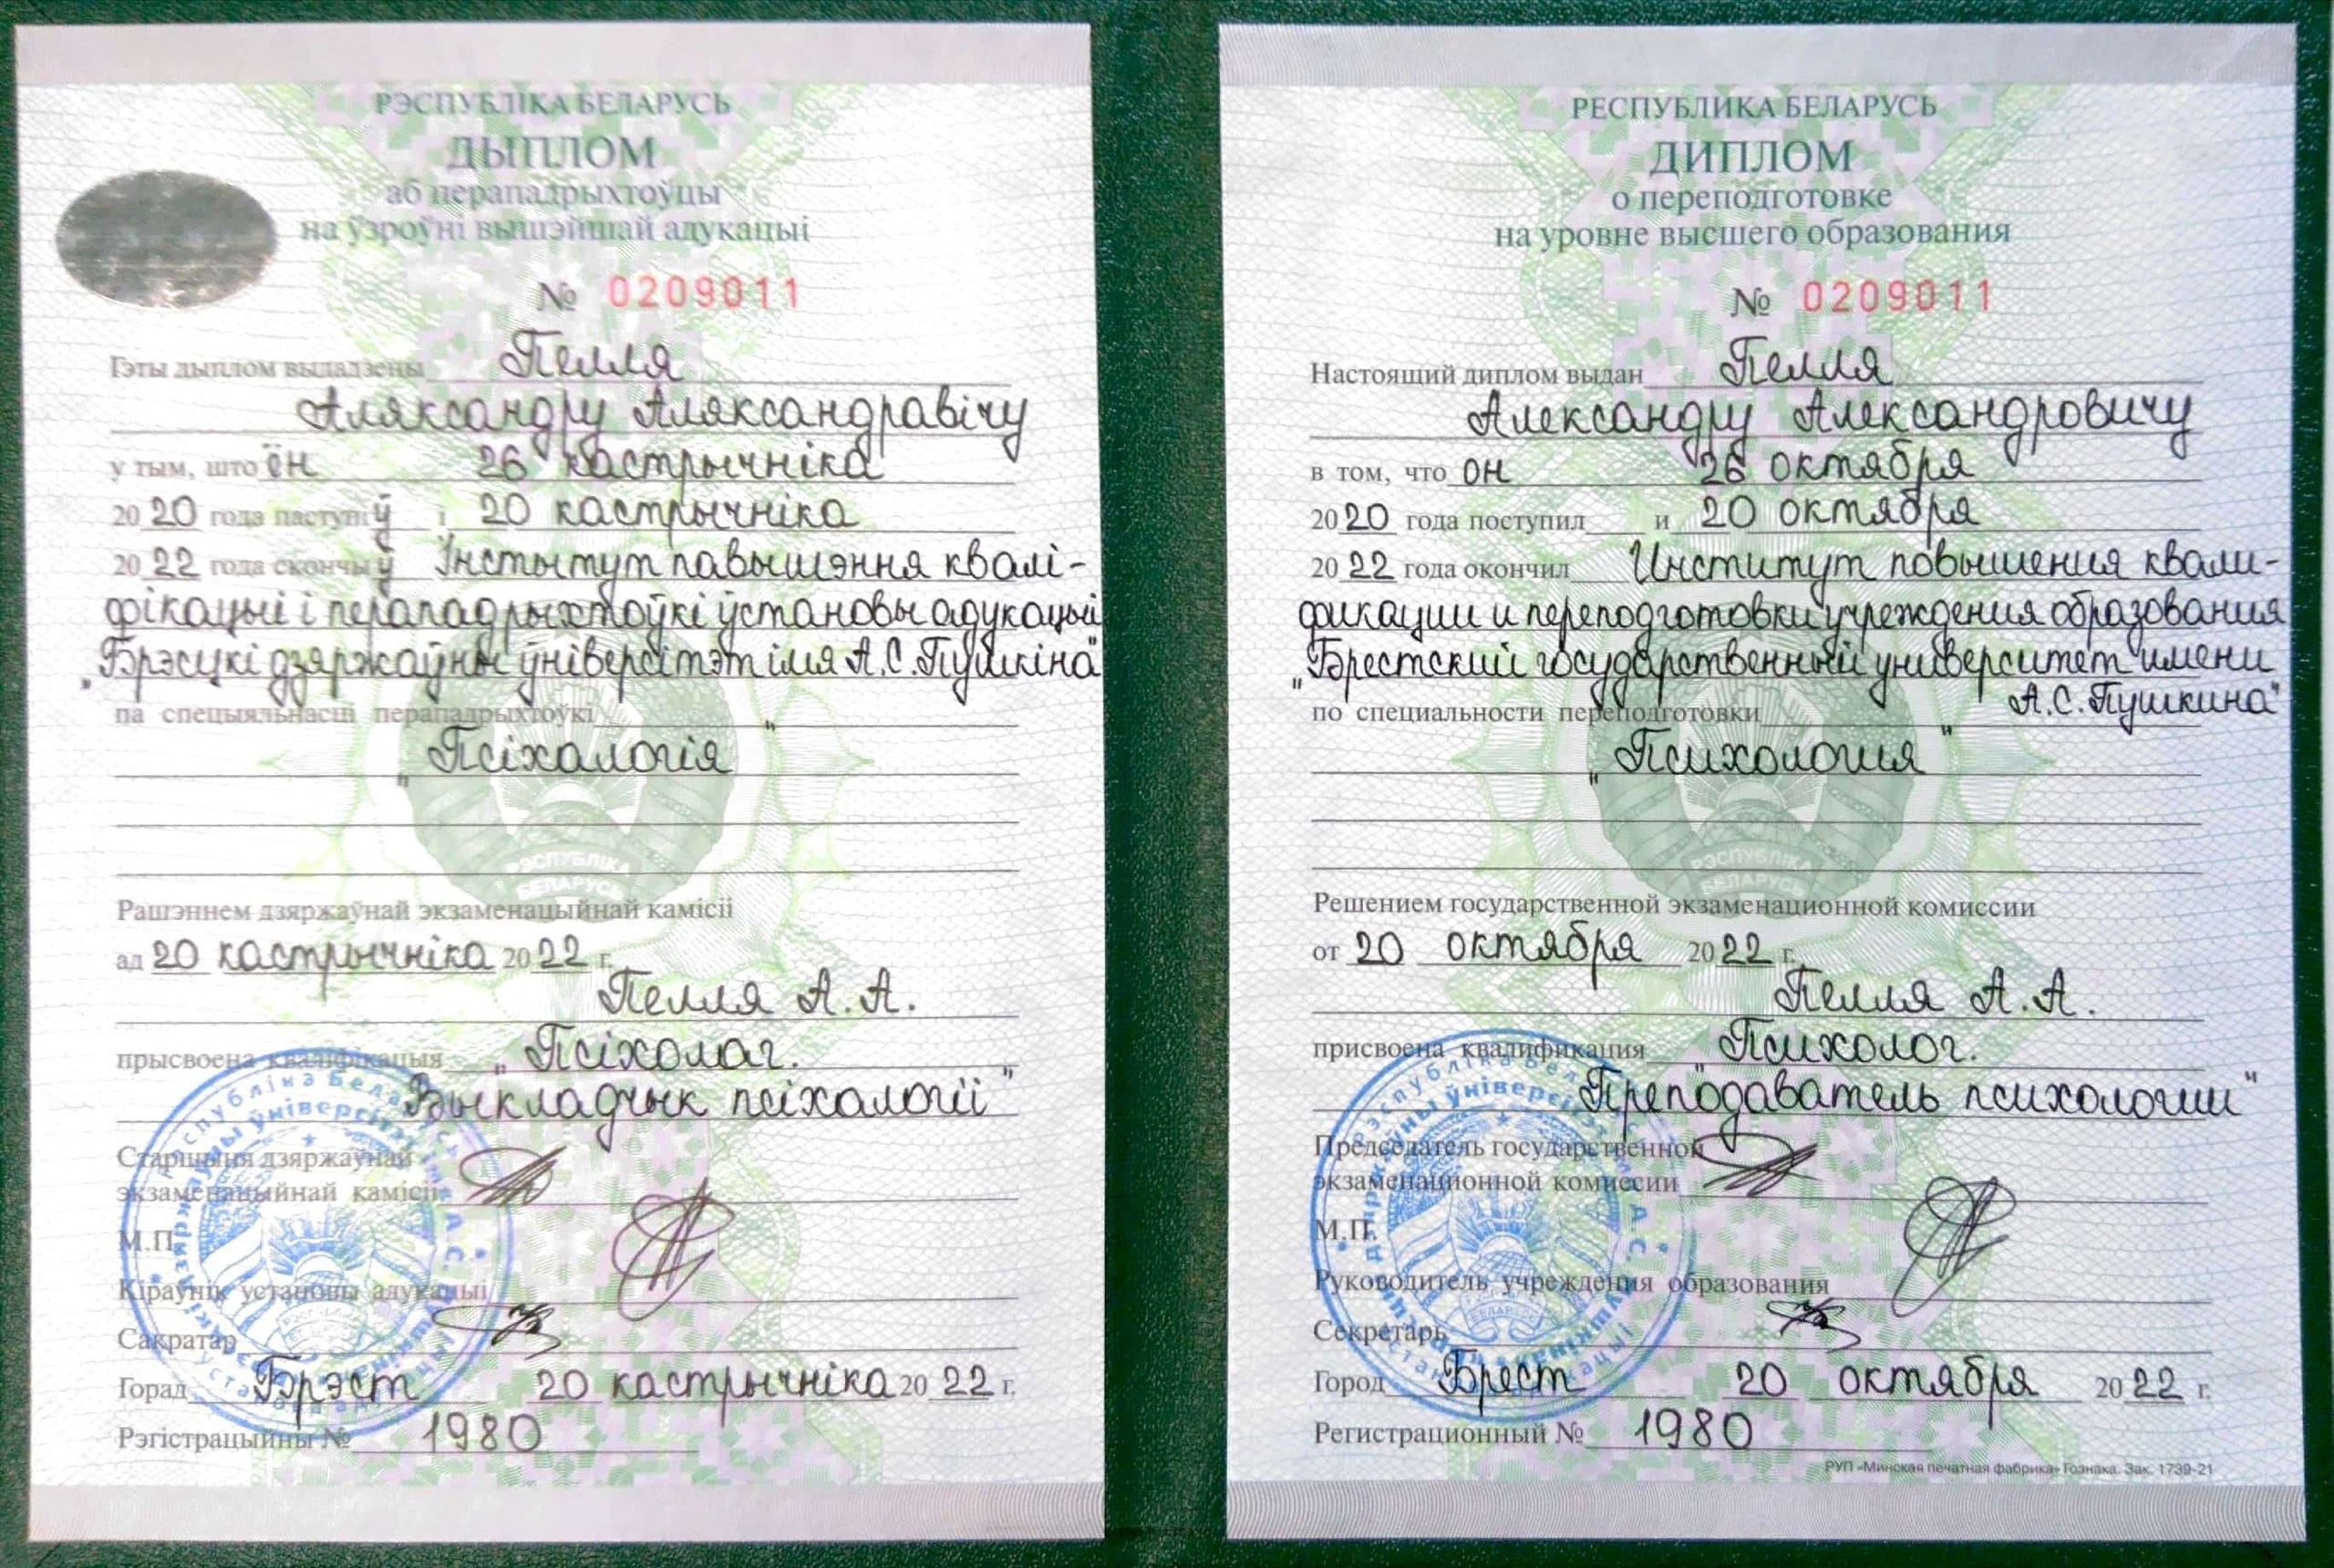 РЭСПУБЛІКА БЕЛАРУСЬ
ДЫПЛОМ
аб перападрыхтоўцы
на ўзроўні вышэйшай адукацыі
№ 0209011
Гэты дыплом выдадзены Пелля
Аляксандру Аляксандравічу
у тым, што ён 26 кастрычніка
2020 года паступіў і 20 кастрычніка
2022 года скончыў Інстытут павышэння квалі-
фікацыі і перападрыхтоўкі ўстановы адукацыі
"Брэсцкі дзяржаўны ўніверсітэт імя А.С.Пушкіна"
па спецыяльнасці перападрыхтоўкі
"Псіхалогія"
РЭСПУБЛІКА
БЕЛАРУСЬ
Рашэннем дзяржаўнай экзаменацыйнай камісіі
ад 20 кастрычніка 2022 г.
Пелля А.А.
прысвоена кваліфікацыя "Псіхолаг.
Выкладчык псіхалогіі"
Старшыня дзяржаўнай
экзаменацыйнай камісіі
М.П.
Кіраўнік установы адукацыі
Сакратар
Горад Брэст 20 кастрычніка 2022 г.
Рэгістрацыйны № 1980
РЕСПУБЛИКА БЕЛАРУСЬ
ДИПЛОМ
о переподготовке
на уровне высшего образования
№ 0209011
Настоящий диплом выдан Пелля
Александру Александровичу
в том, что он 26 октября
2020 года поступил и 20 октября
2022 года окончил Институт повышения квали-
фикации и переподготовки учреждения образования
"Брестский государственный университет имени
А.С.Пушкина"
по специальности переподготовки
"Психология"
РЭСПУБЛІКА
БЕЛАРУСЬ
Решением государственной экзаменационной комиссии
от 20 октября 2022 г.
Пелля А.А.
присвоена квалификация "Психолог.
Преподаватель психологии"
Председатель государственной
экзаменационной комиссии
М.П.
Руководитель учреждения образования
Секретарь
Город Брест 20 октября 2022 г.
Регистрационный № 1980
РУП «Минская печатная фабрика» Гознака. Зак. 1739-21